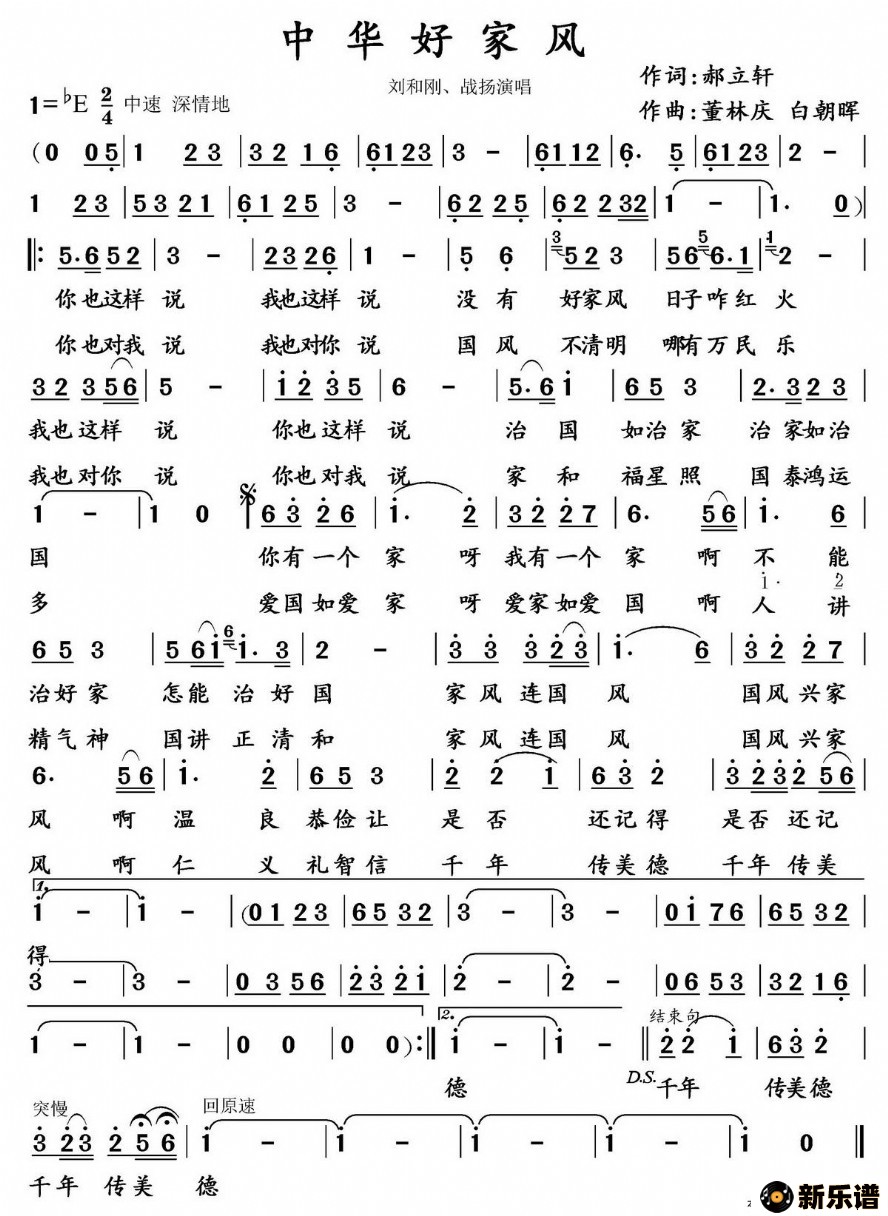 中华好家风
刘和刚、战扬演唱
作词:郝立轩
1=♭E 2/4 中速 深情地
作曲:董林庆 白朝晖
(0 05|1 23|32 16|6123|3 -|6112|6. 5|6123|2 -|
1 23|53 21|61 25|3 -|62 25|62 232|1 -|1. 0)|
‖:5.652|3 -|2326|1 -|5 6|3 523|56 5 6.1|1 2 -|
你也这样 说 我也这样 说 没有 好家风 日子咋红 火
你也对我 说 我也对你 说 国风 不清明 哪有万民 乐
32 356|5 -|i2 35|6 -|5.6 i|6 5 3|2.3 23|
我也这样 说 你也这样 说 治 国 如治家 治家如治
我也对你 说 你也对我 说 家 和 福星照 国泰鸿运
1 -|1 0‖63 26|i. 2|32 27|6. 56|i. 6|
国 你有一个 家 呀 我有一个 家 啊 不 能
i. 2
多 爱国如爱 家 呀 爱家如爱 国 啊 人 讲
65 3|5 6i 6 i. 3|2 -|3 3 323|i. 6|32 27|
治好家 怎能 治好国 家风连国 风 国风兴家
精气神 国讲正清和 家风连国 风 国风兴家
6. 56|i. 2|65 3|2 2 i|63 2|323 256|
风 啊 温 良 恭俭让 是否 还记得 是否还记
风 啊 仁 义 礼智信 千年 传美德 千年传美
1.
i -|i -|(01 23|65 32|3 -|3 -|0i 76|65 32|
得
3 -|3 -|0 356|23 2i|2 -|2 -|065 3|3216|
2. 结束句
1 -|1 -|0 0|0 0):‖i -|i -‖22 i|63 2|
德 D.S.千年 传美德
突慢 回原速
3 23 2 56|i -|i -|i -|i -|i 0‖
千年 传美 德
新乐谱